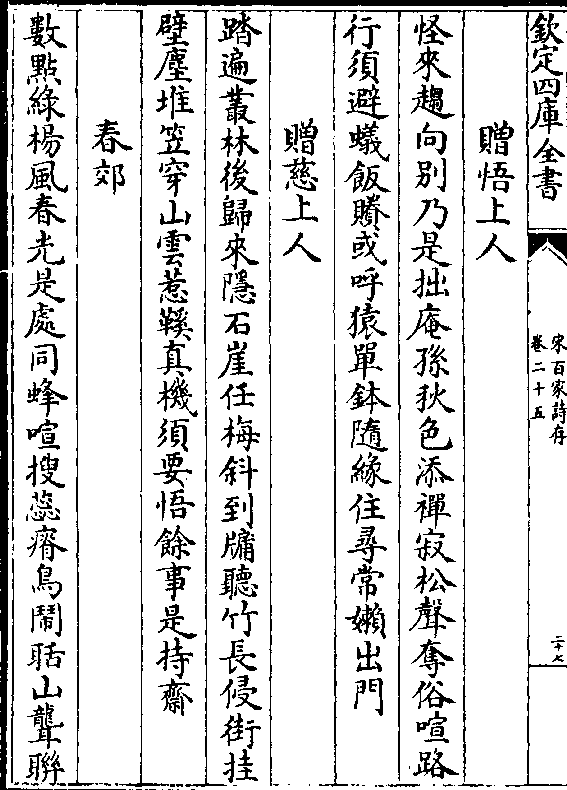 欽定四庫全書
宋百家詩存
卷二十五
二十七
贈悟上人
怪來趨向別乃是拙庵孫秋色添禪寂松聲奪俗喧路
行須避蟻飯賸或呼猿單鉢隨緣住尋常嬾出門
贈慈上人
踏遍叢林後歸來隱石崖任梅斜到牖聽竹長侵街挂
壁塵堆笠穿山雲惹鞵真機須要悟餘事是持齋
春郊
數點綠楊風春光是處同蜂喧搜蕊瘠鳥鬧聒山聾聯